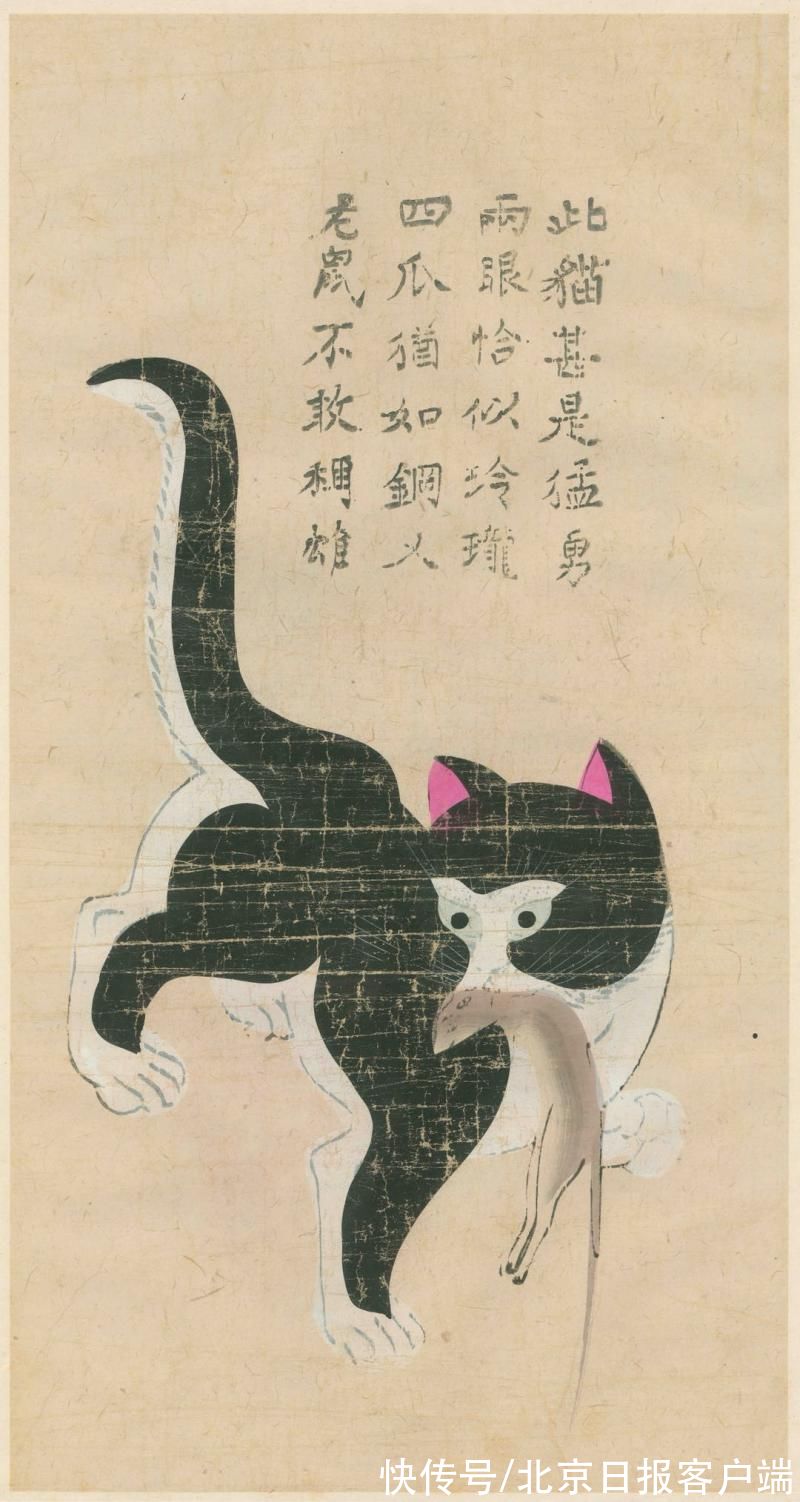 此貓甚是猛勇
兩眼恰似玲瓏
四瓜猶如鋼乂
老鼠不敢稱雄
快传号/北京日报客户端